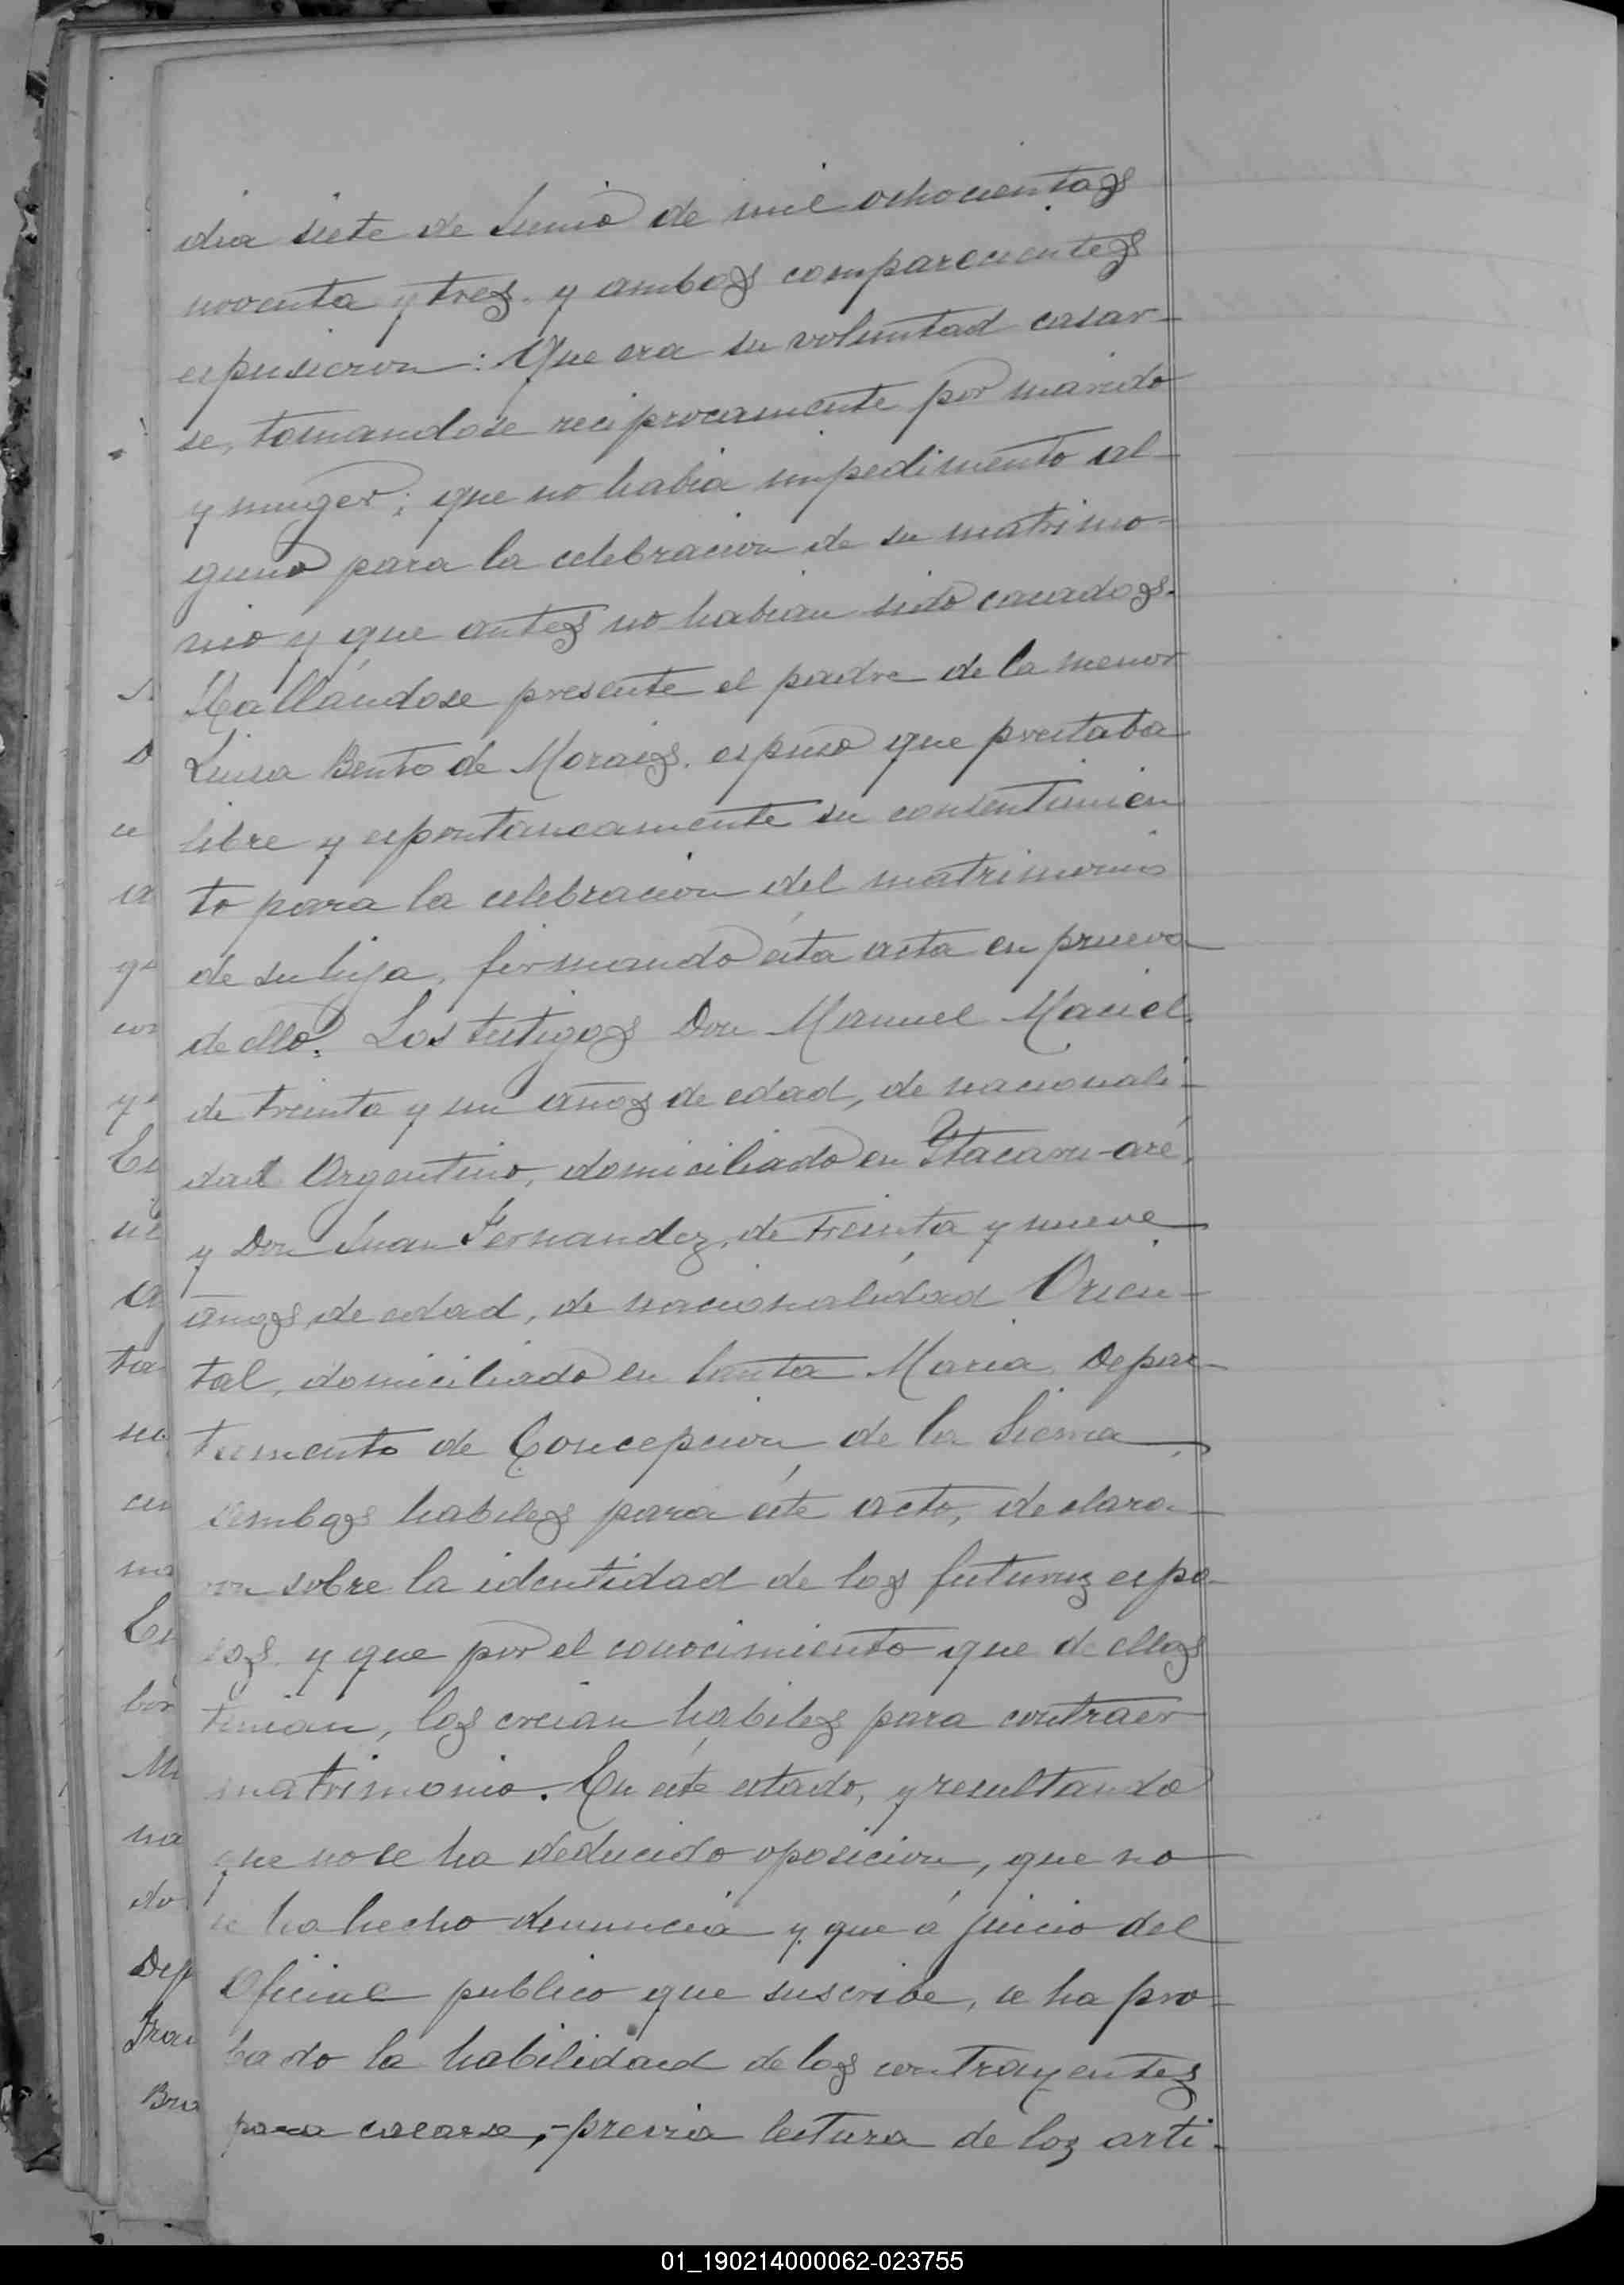 dia siete de Junio de mil ochocientos
noventa y tres. y ambos comparecientes
espusieron: Que era su voluntad casar-
se, tomandose reciprocamente por marido
y muger; que no habia impedimento al-
guno para la celebracion de su matrimo-
nio y que antes no habian sido casados.
Hallándose presente el padre de la menor
Luisa Bento de Morais. espuso que prestaba
libre y espontaneamente su consentimien
to para la celebracion del matrimonio
de su hija, firmando ésta acta en prueva
de ello. Los testigos Don Manuel Maciel.
de treinta y un años de edad, de nacionali-
dad Argentino, domiciliado en Itacaru-aré,
y Don Juan Fernandez, de treinta y nueve
años, de edad, de nacionalidad Orien-
tal, domiciliado en Santa Maria Depar-
tamento de Concepcion de la Sierra
ambos habiles para éste acto, declara-
ron sobre la identidad de los futuros espo-
sos y que por el conocimiento que de ellos
tenian, los creian hábiles para contraer
matrimonio. En éste estado, y resultando
que no se ha deducido oposicion, que no
se ha hecho denuncia y que á juicio del
Oficial publico que suscribe, se ha pro-
bado la habilidad de los contrayentes
para casarse,-previa lectura de los arti-
01_190214000062-023755